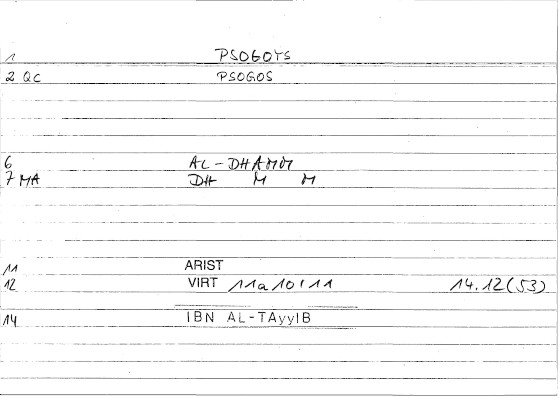 1 PSOGOYS
2 QC PSOGOS
6 AL-DHAMM
7 MA DH M M
11 ARIST
12 VIRT 11a10;11 14.12(53)
14 IBN AL-TAyyIB